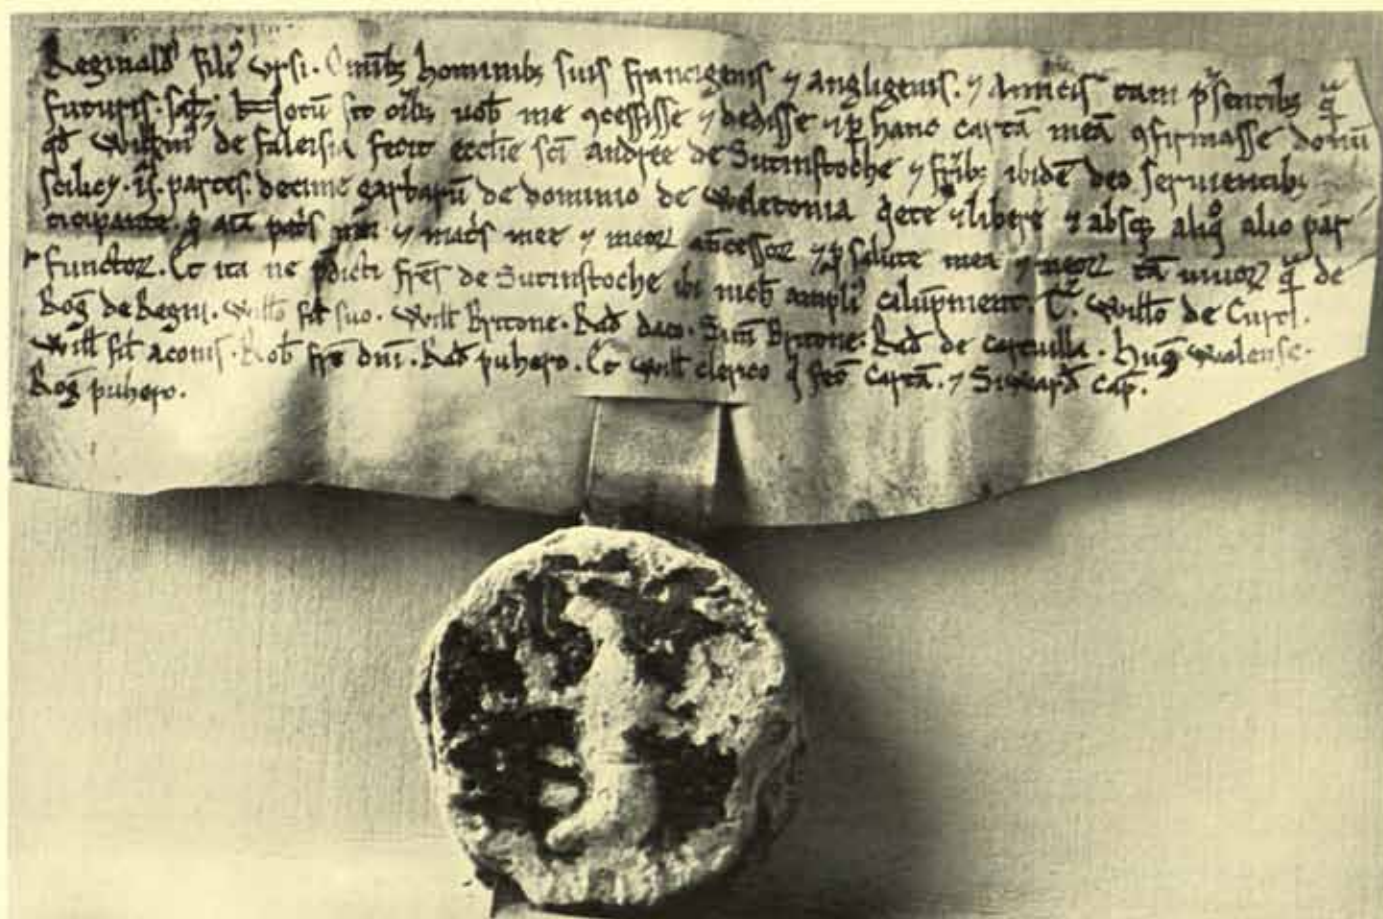 Reginald' fili' Ursi. Omīb; hominib; suis francigenis ⁊ angligenis. ⁊ Amicis tam p̄sentib; q̄
futuris. sat̄; Notū sit oīb; uob̄ me ꝯcessisse ⁊ dedisse ⁊ ꝑ hanc cartā meā ꝯfirmasse donū
qd̄ Willm̄' de faleisia fecit eccl̄ie sc̄i andree de Sutinstoche ⁊ fr̄ib; ibidē deo seruientib;
scilic&. ii. partes. decime garbarū de dominio de Weletonia q̇ete ⁊ libere ⁊ absq; aliq̊ alio par
ticipante. ꝑ aīa pat̄s mei ⁊ mat̄s mee ⁊ meoꝝ an̄cessoꝝ ⁊ ꝑ salute mea ⁊ meoꝝ tā uiuoꝝ q̄ de
functoꝝ. Et ita ne p̄dicti fr̄es de Sutinstoche ibi nich̄ ampli' calūpnient. T̄. Willō de Curci.
Roḡ de Regni. Willō fil̄ suo. Will̄ Britone. Rad̄ daco. Sim̄ Britone. Rad̄ de cartuilla. Huḡ Walense.
Will̄ fil̄ aconis. Rob̄ fr̄e dn̄i. Rad̄ puhero. Et Will̄ clerico q̄ fec̄ cartā. ⁊ Siward̄ cap̄.
Roḡ puhero.